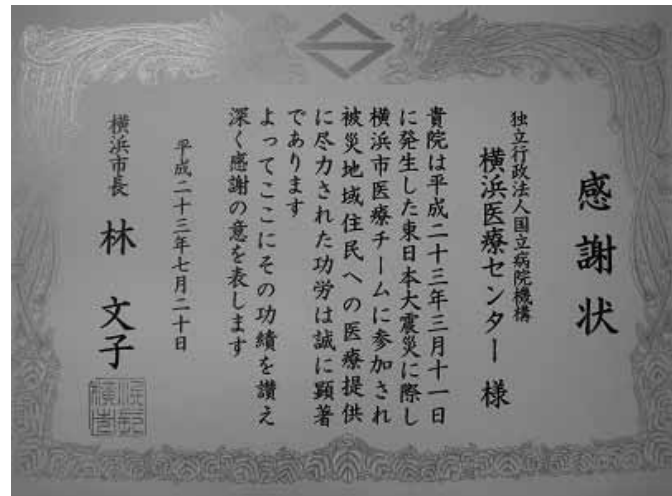 感謝状
独立行政法人国立病院機構
横浜医療センター 様
貴院は平成二十三年三月十一日
に発生した東日本大震災に際し
横浜市医療チームに参加され
被災地域住民への医療提供
に尽力された功労は誠に顕著
であります
よってここにその功績を讃え
深く感謝の意を表します
平成二十三年七月二十日
横浜市長 林 文子